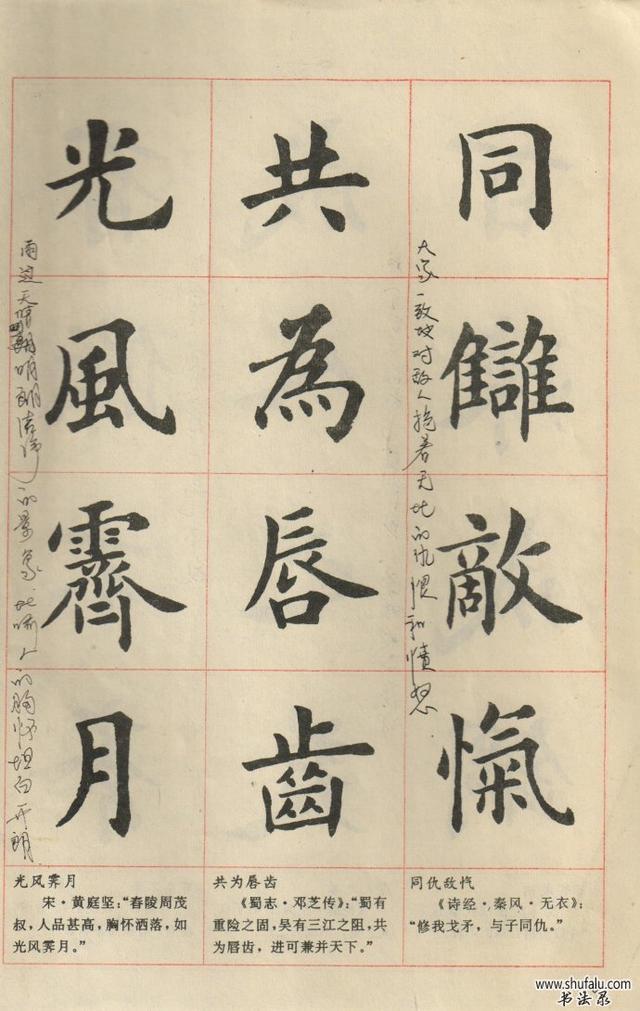 同讎敵愾
大家一致地对敌人抱着无比的仇恨和愤怒
共為唇齒
光風霽月
雨过天晴明朗清净的景象比喻人的胸怀坦白开朗
同仇敌忾
《诗经·秦风·无衣》：
“修我戈矛，与子同仇。”
共为唇齿
《蜀志·邓芝传》：“蜀有
重险之固，吴有三江之阻，共
为唇齿，进可兼并天下。”
光风霁月
宋·黄庭坚：“舂陵周茂
叔，人品甚高，胸怀洒落，如
光风霁月。”
www.shufalu.com
书法录